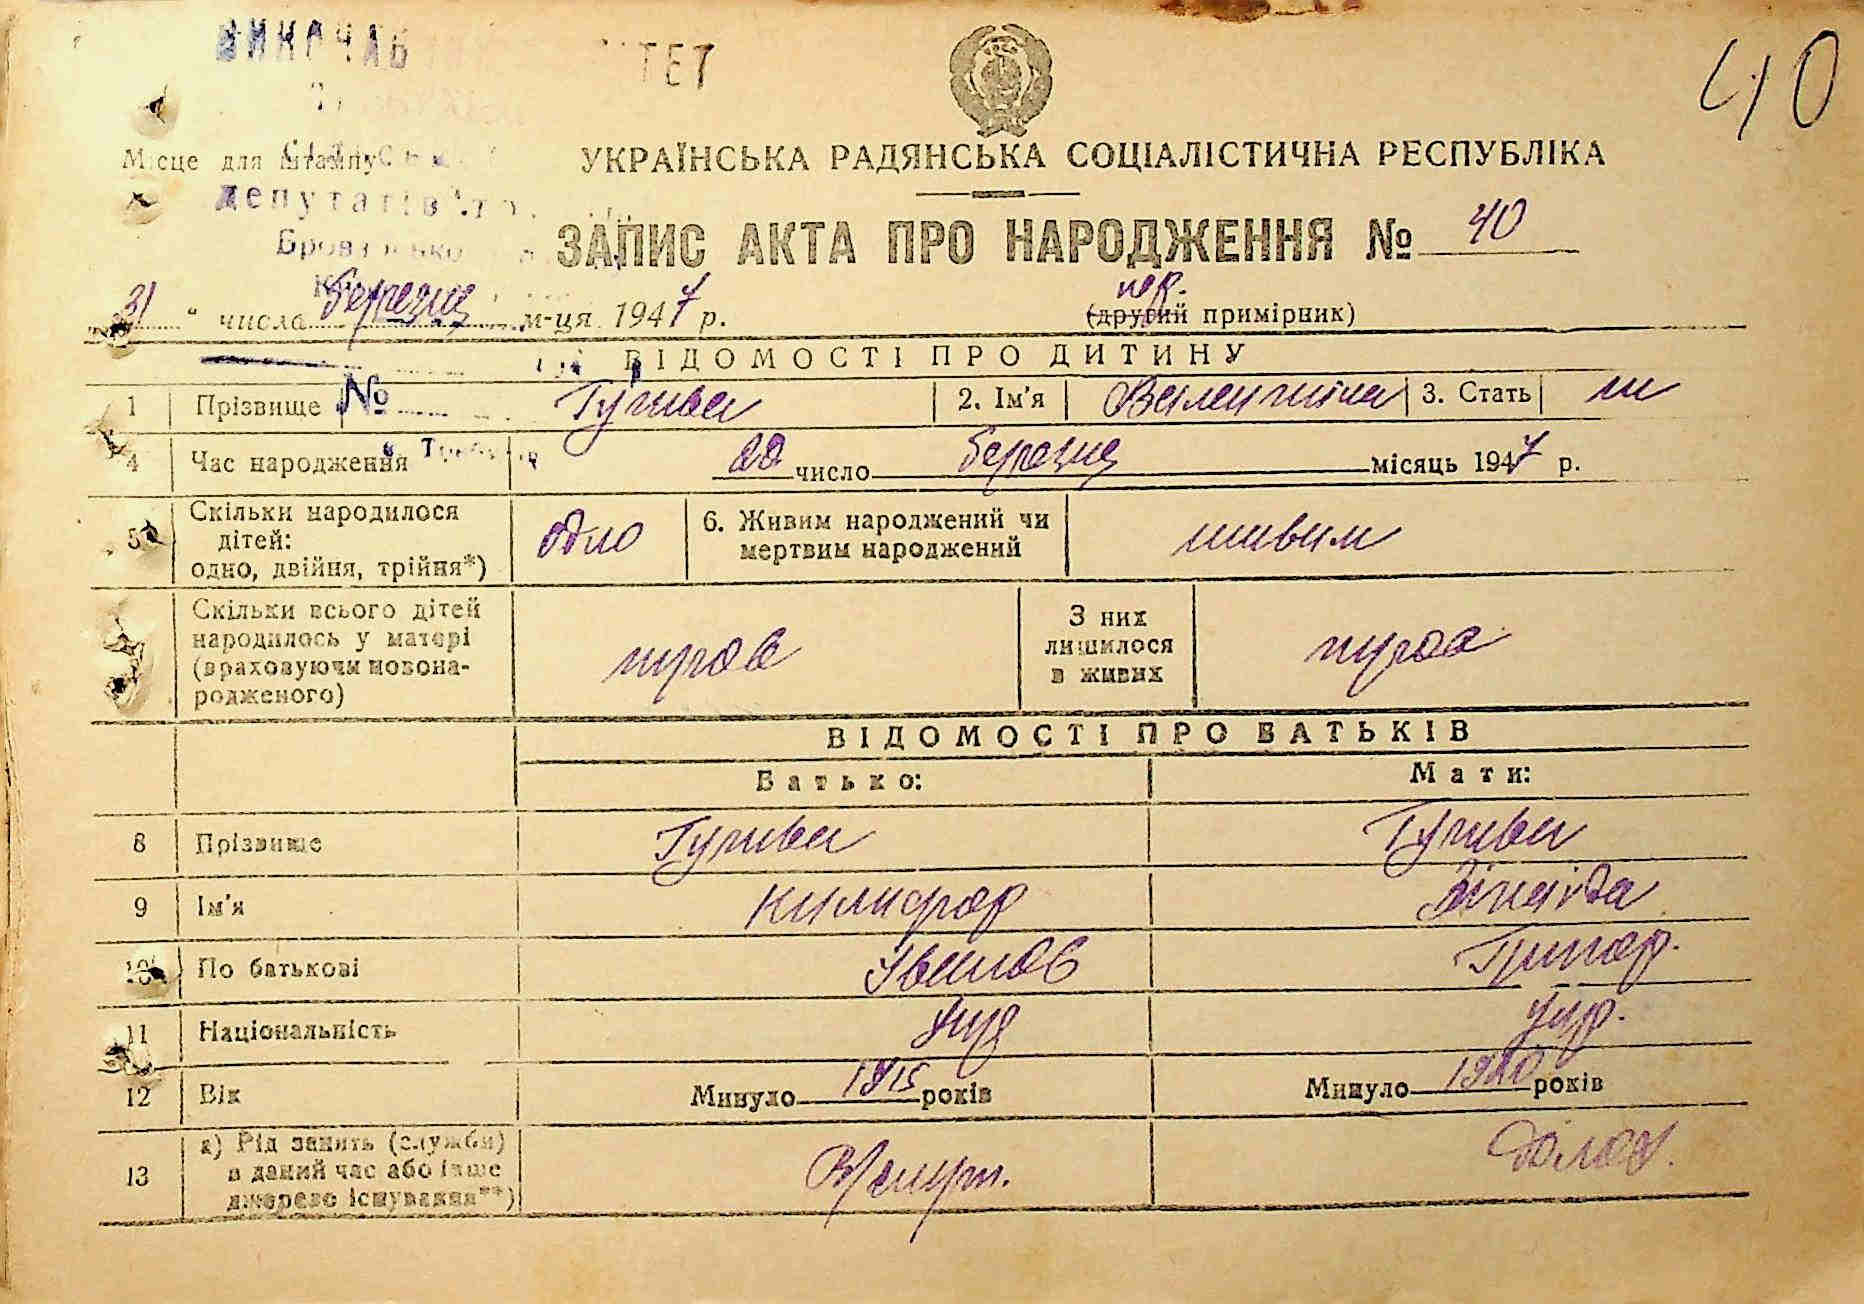 ВИКОНАВ ТЕТ
40
Місце для штампу
депутатів
УКРАЇНСЬКА РАДЯНСЬКА СОЦІАЛІСТИЧНА РЕСПУБЛІКА
ЗАПИС АКТА ПРО НАРОДЖЕННЯ № 40
31 " числа березня м-ця 1947 р.
пер.
(другий примірник)
ВІДОМОСТІ ПРО ДИТИНУ
№
1 Прізвище 2. Ім'я Валентина 3. Стать ж
4 Час народження 22 число березня місяць 1947 р.
5 Скільки народилося
дітей:
одно, двійня, трійня*)
одно
6. Живим народжений чи
мертвим народжений
живим
Скільки всього дітей
народилось у матері
(враховуючи новона-
родженого)
троє
З них
лишилося
в живих
троє
ВІДОМОСТІ ПРО БАТЬКІВ
Батько: Мати:
8 Прізвище
9 Ім'я Зінаїда
10 По батькові Іванов Григор.
11 Національність Укр Укр.
12 Вік Минуло 1915 років Минуло 1920 років
13 а) Рід занять (служби)
в даний час або інше
джерело існування**)